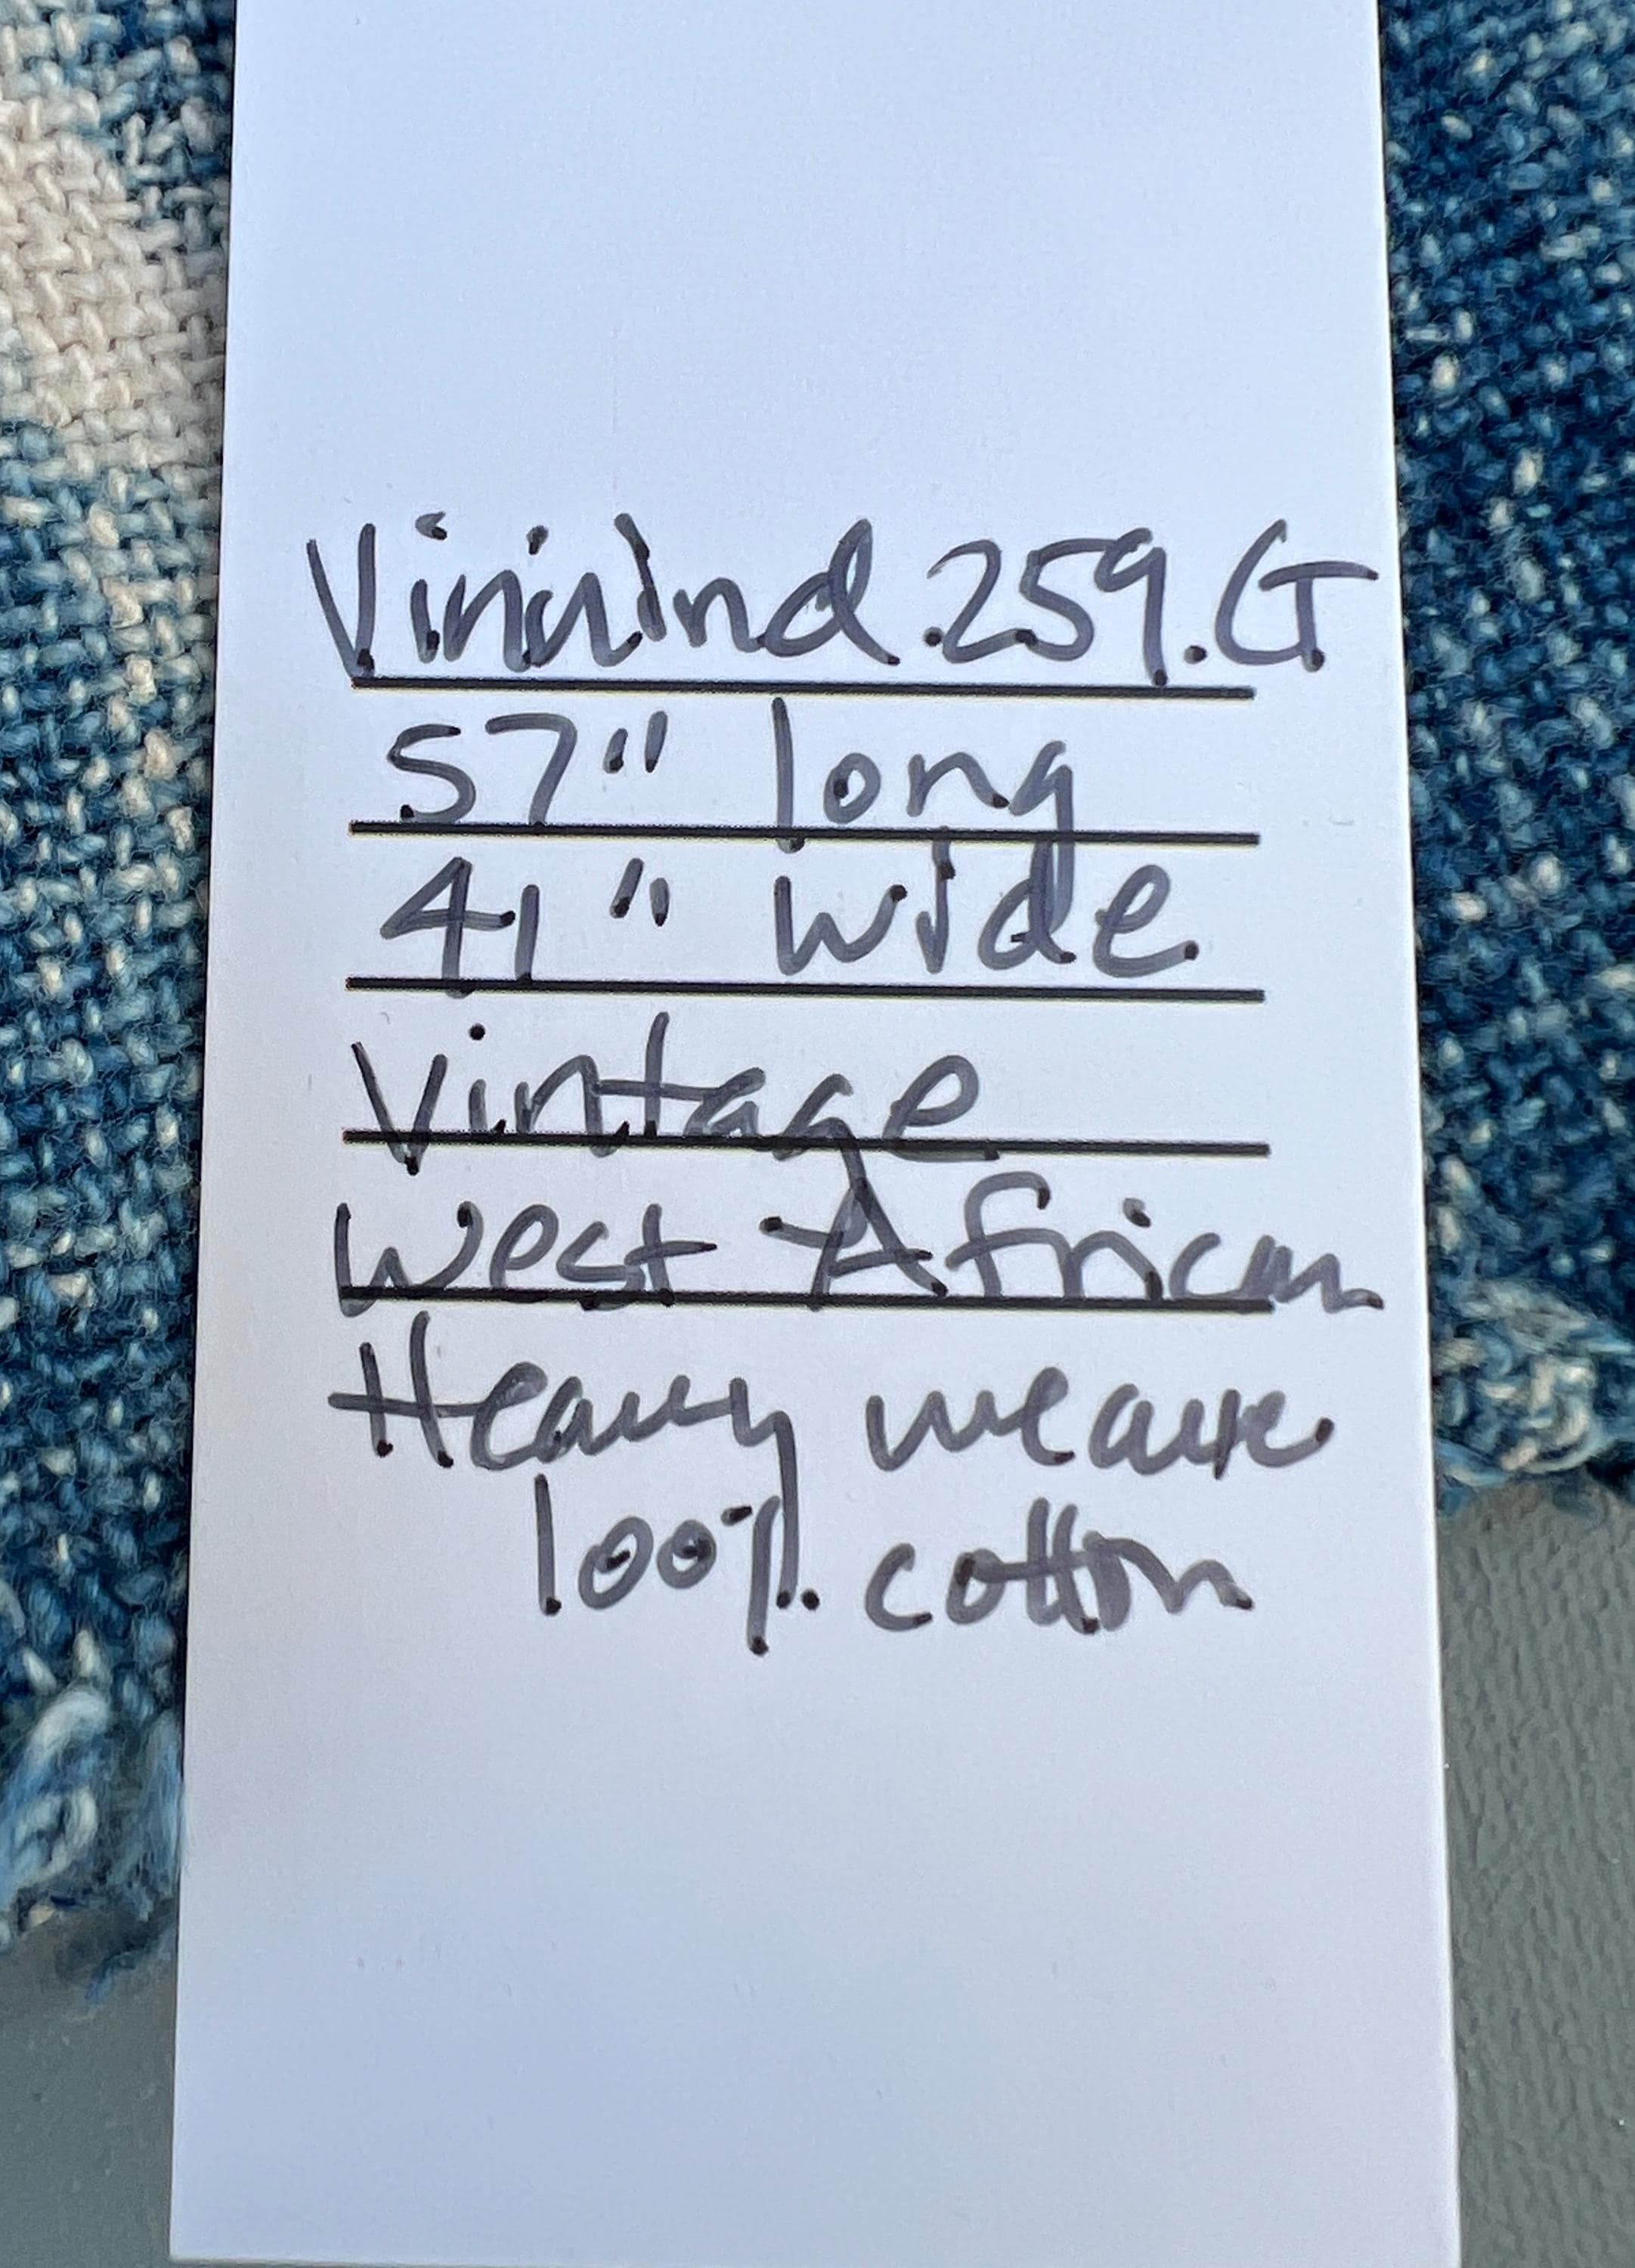 .259.G
57" long
41" wide
Vintage
West African
Heavy weave
100% cotton